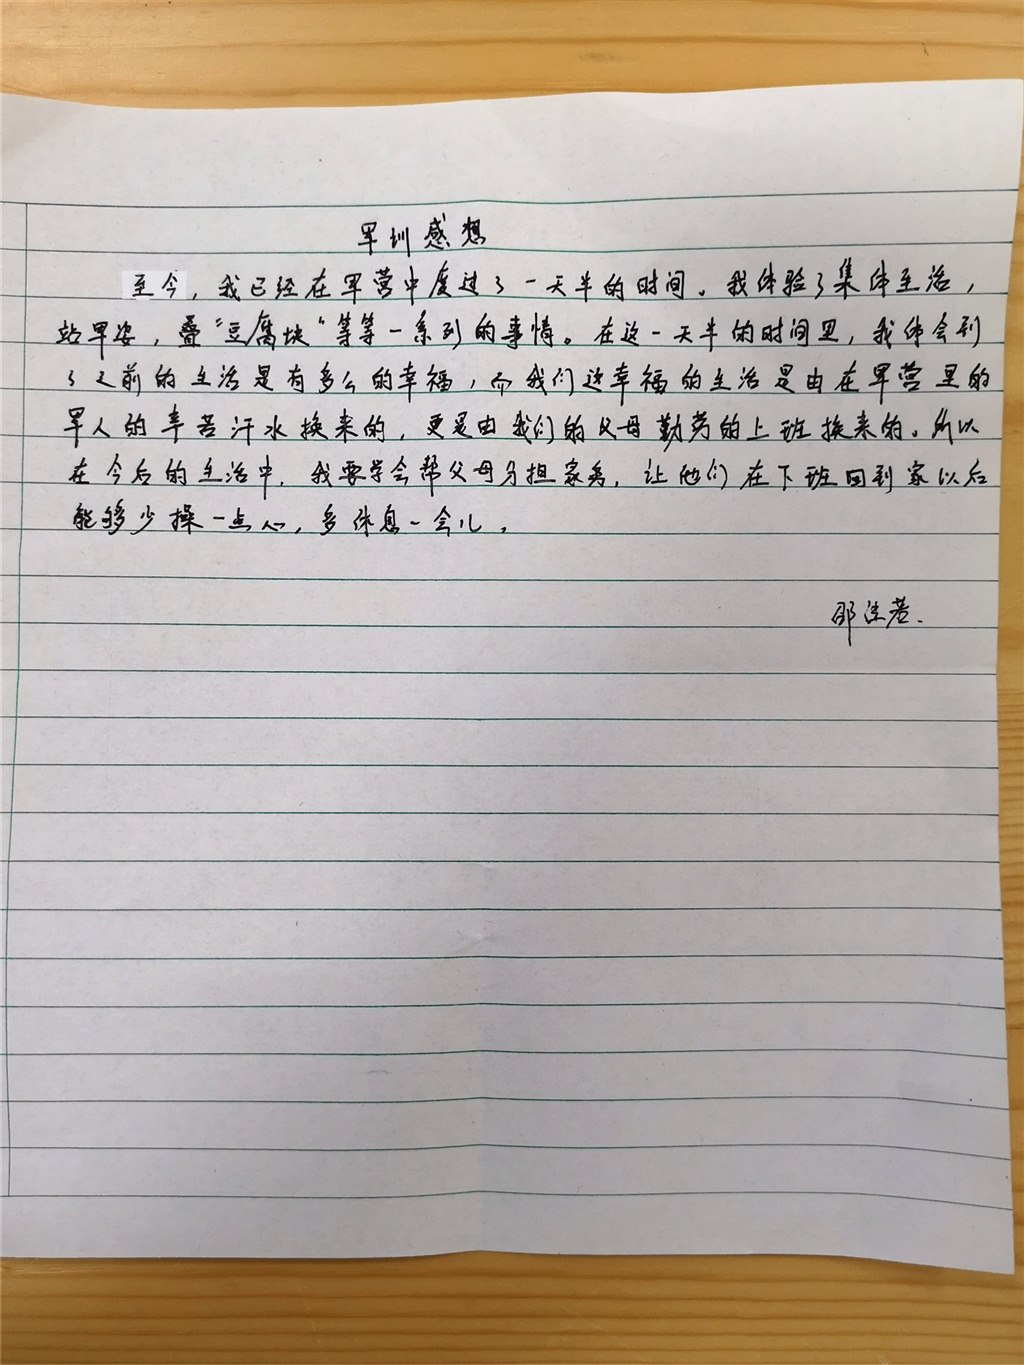 军训感想
至今，我已经在军营中度过了一天半的时间。我体验了集体生活，
站军姿，叠“豆腐块”等等一系列的事情。在这一天半的时间里，我体会到
了之前的生活是有多么的幸福，而我们这幸福的生活是由在军营里的
军人的辛苦汗水换来的，更是由我们的父母勤劳的上班换来的。所以
在今后的生活中，我要学会帮父母分担家务，让他们在下班回到家以后
能够少操一点心，多休息一会儿。
邵